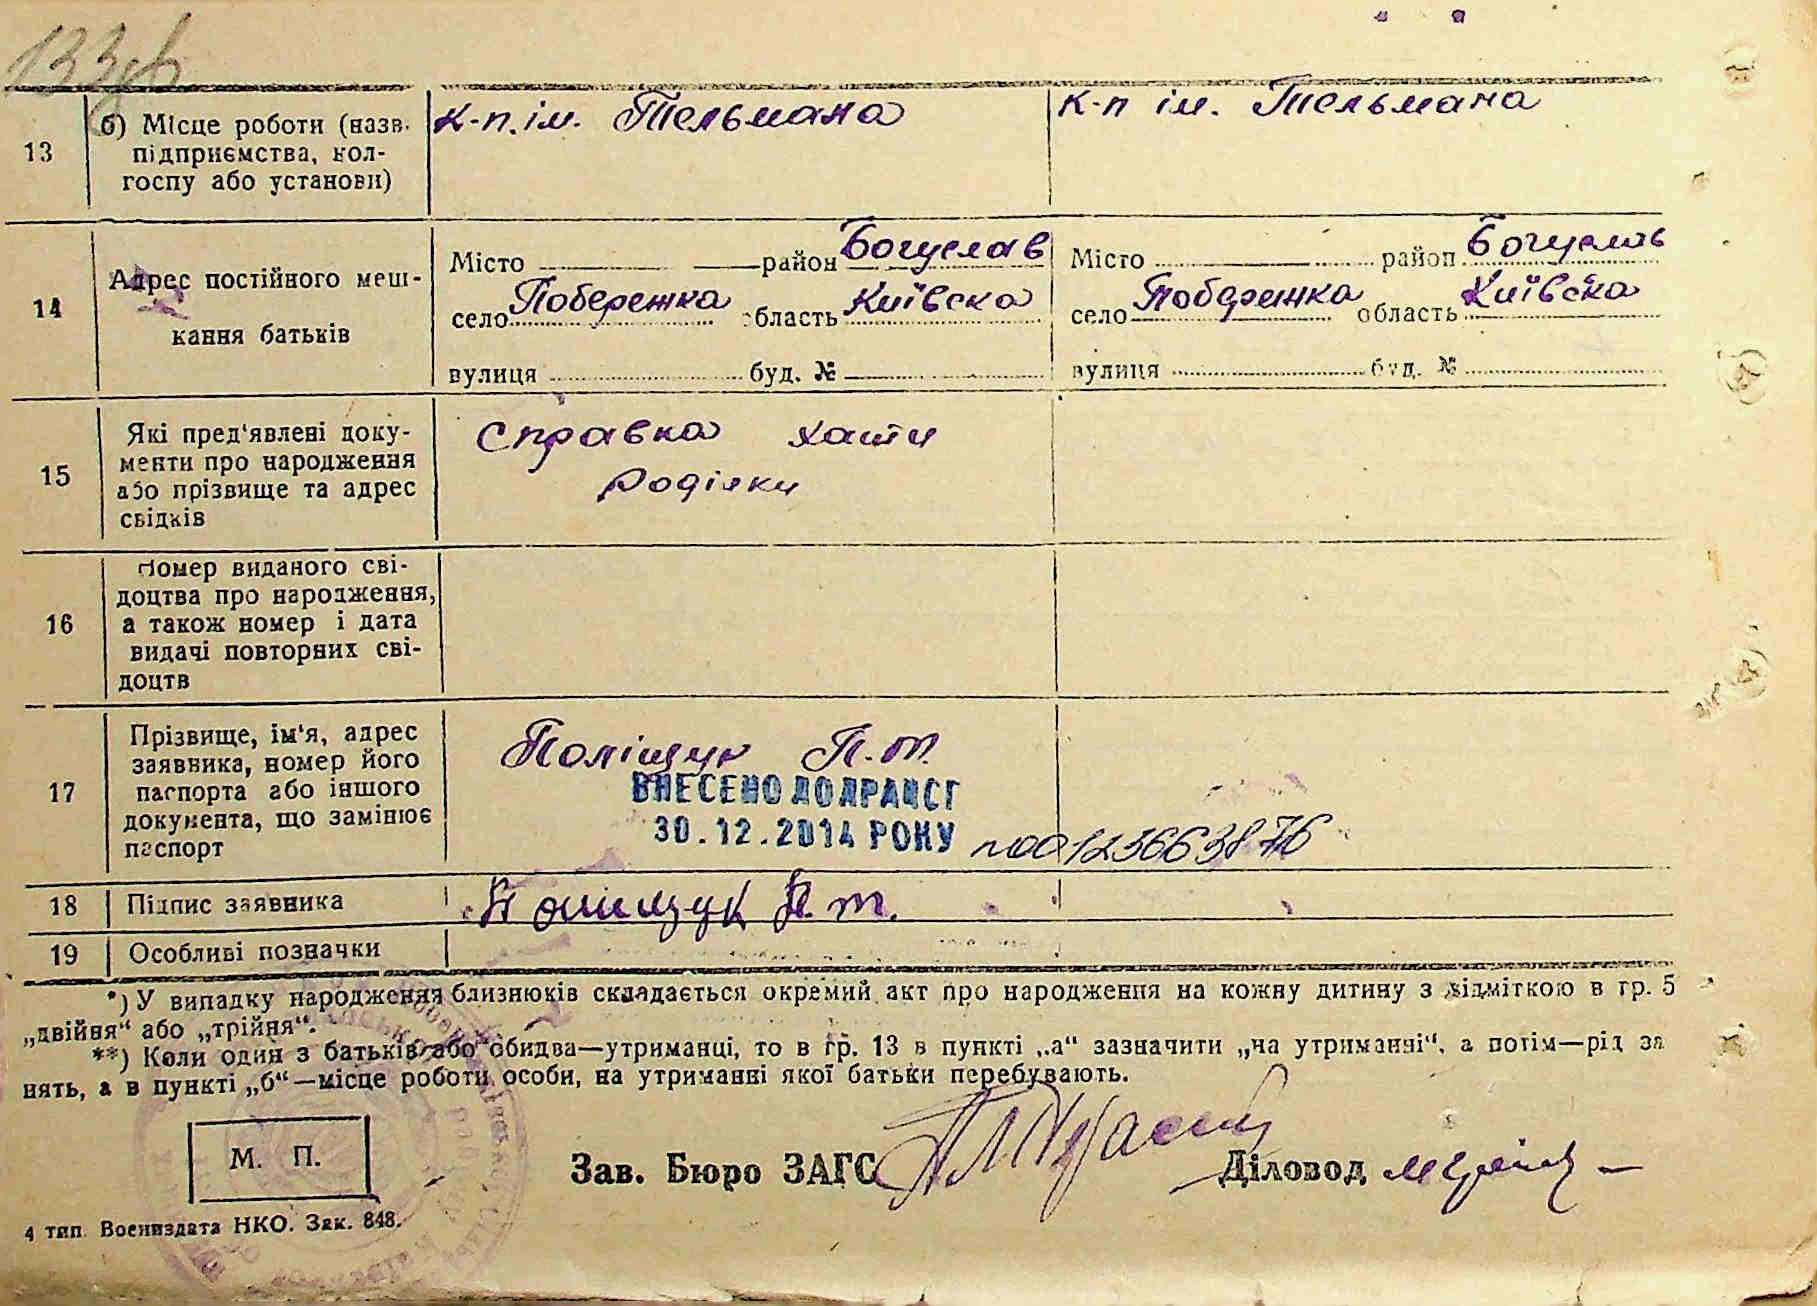 133зв
13
б) Місце роботи (назв. підприємства, колгоспу або установи)
к-п. ім. Тельмана
к-п ім. Тельмана
14
Адрес постійного мешкання батьків
Місто район Богуслав
село Побережка область Київська
вулиця буд. №
Місто район Богуслав
село Побережка область Київська
вулиця буд. №
15
Які пред'явлені доку-
менти про народження
або прізвище та адрес
свідків
Справка хати
роділки
16
Номер виданого сві-
доцтва про народження,
а також номер і дата
видачі повторних сві-
доцтв
17
Прізвище, ім'я, адрес
заявника, номер його
паспорта або іншого
документа, що замінює
паспорт
Поліщук П. Т.
ВНЕСЕНО ДО ДРАЦСГ
30.12.2014 РОКУ
n00123663876
18
Підпис заявника
Поліщук П. т.
19
Особливі позначки
*) У випадку народження близнюків складається окремий акт про народження на кожну дитину з відміткою в гр. 5
„двійня“ або „трійня“.
**) Коли один з батьків або обидва—утриманці, то в гр. 13 в пункті „а“ зазначити „на утриманні“, а потім—рід за
нять, а в пункті „б“—місце роботи особи, на утриманні якої батьки перебувають.
М. П.
Зав. Бюро ЗАГС
Діловод
4 тип. Воениздата НКО. Зак. 848.